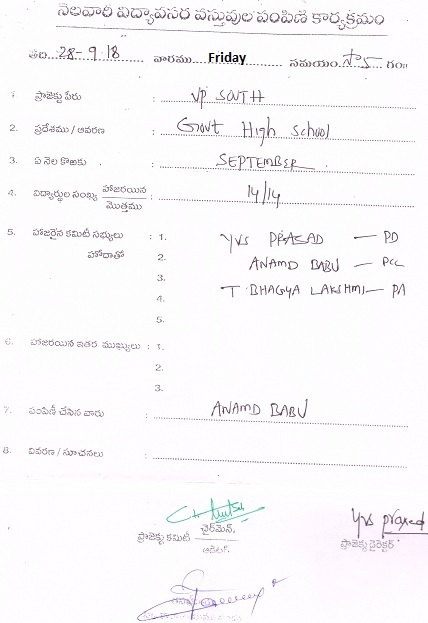 నెలవారీ విద్యావసర వస్తువుల పంపిణి కార్యక్రమం
తేది... 28-9-18 వారము..... Friday సమయం: సా 5 గం॥
1. ప్రాజెక్టు పేరు : VP SOUTH
2. ప్రదేశము / ఆవరణ : Govt High School
3. ఏ నెల కొఱకు : SEPTEMBER
4. విద్యార్థుల సంఖ్య హాజరయిన / మొత్తము : 14/14
5. హాజరైన కమిటీ సభ్యులు : 1. YVS PRASAD — PD
హోదాతో 2. ANAND BABU — PCC
3. T. BHAGYA LAKSHMI — PA
4.
5.
6. హాజరయిన ఇతర ముఖ్యులు : 1.
2.
3.
7. పంపిణీ చేసిన వారు : ANAND BABU
8. వివరణ / సూచనలు :
ప్రాజెక్టు కమిటీ ఛైర్‌మెన్
ఆడిటర్
yvs prased
ప్రాజెక్టు డైరెక్టర్